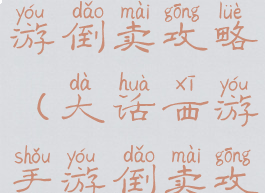 yóu dǎo mài gōng lüè
游倒卖攻略
dà huà xī yóu
(大话西游
shǒu yóu dǎo mài gōng
手游倒卖攻